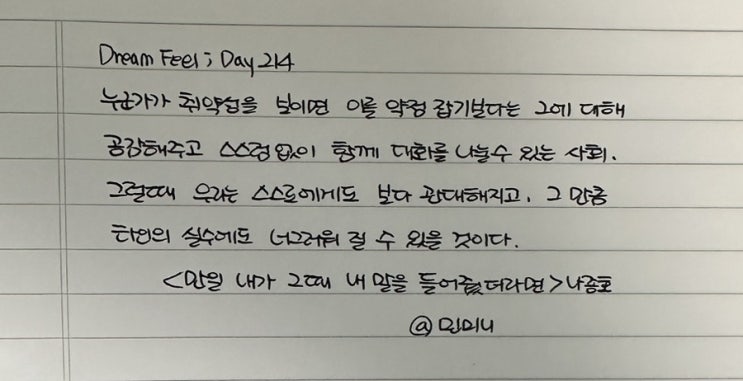 Dream Feel ; Day 214
누군가가 취약성을 보이면 이를 약점 잡기보다는 그에 대해
공감해주고 스스럼없이 함께 대화를 나눌 수 있는 사회.
그럴때 우리는 스스로에게도 보다 관대해지고, 그 만큼
타인의 실수에도 너그러워 질 수 있을 것이다.
<만일 내가 그때 내 말을 들어줬더라면> 나종호
@민미니